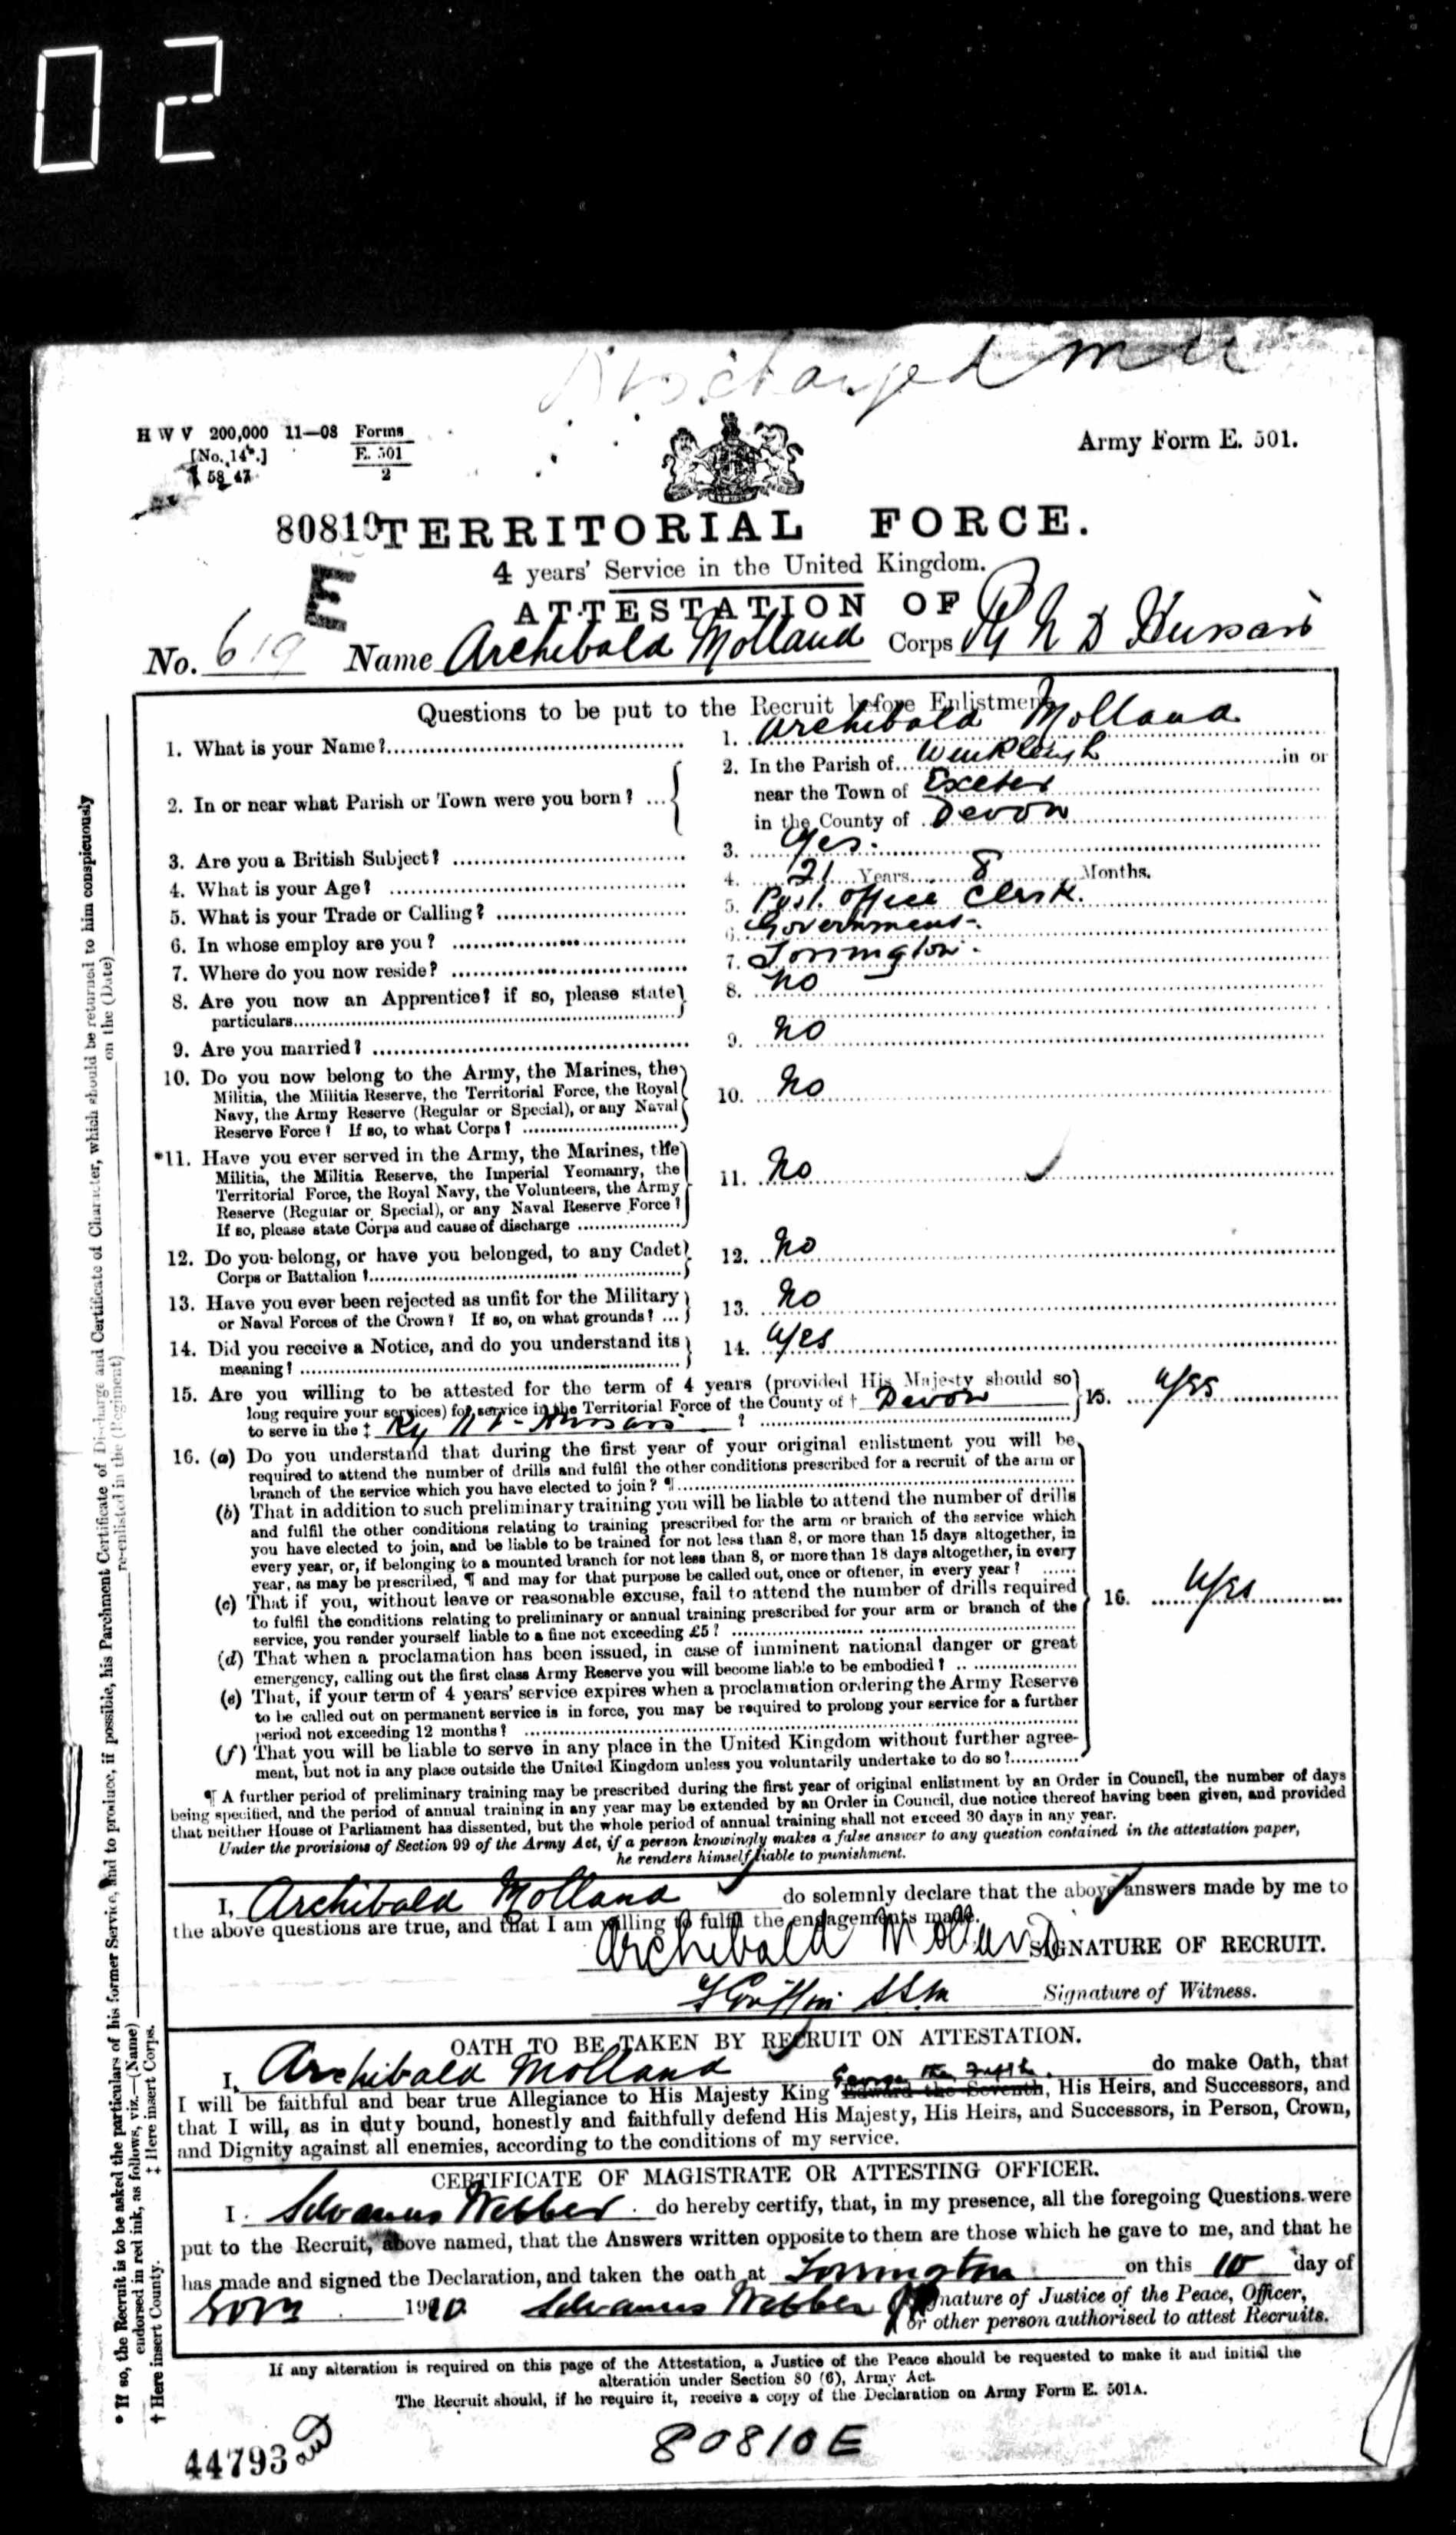 02
Discharged
H W V 200,000 11—08 Forms
[No. 14.] E. 501
58 47 2
Army Form E. 501.
80810 TERRITORIAL FORCE.
E
4 years' Service in the United Kingdom.
ATTESTATION OF
No. 619 Name Archibald Molland Corps Ry N D Hussars
Questions to be put to the Recruit before Enlistment.
1. What is your Name? 1. Archibald Molland
2. In or near what Parish or Town were you born? 2. In the Parish of Winkleigh in or
near the Town of Exeter
in the County of Devon
3. Are you a British Subject? 3. Yes.
4. What is your Age? 4. 21 Years 8 Months.
5. What is your Trade or Calling? 5. Post. Office Clerk.
6. In whose employ are you? 6. Government
7. Where do you now reside? 7. Torrington
8. Are you now an Apprentice? if so, please state 8. No
particulars
9. Are you married? 9. No
10. Do you now belong to the Army, the Marines, the
Militia, the Militia Reserve, the Territorial Force, the Royal
Navy, the Army Reserve (Regular or Special), or any Naval 10. No
Reserve Force? If so, to what Corps?
*11. Have you ever served in the Army, the Marines, the
Militia, the Militia Reserve, the Imperial Yeomanry, the
Territorial Force, the Royal Navy, the Volunteers, the Army 11. No
Reserve (Regular or Special), or any Naval Reserve Force?
If so, please state Corps and cause of discharge
12. Do you belong, or have you belonged, to any Cadet 12. No
Corps or Battalion?
13. Have you ever been rejected as unfit for the Military 13. No
or Naval Forces of the Crown? If so, on what grounds?
14. Did you receive a Notice, and do you understand its 14. Yes
meaning?
15. Are you willing to be attested for the term of 4 years (provided His Majesty should so
long require your services) for service in the Territorial Force of the County of † Devon 15. Yes
to serve in the ‡ Ry N D Hussars ?
16. (a) Do you understand that during the first year of your original enlistment you will be
required to attend the number of drills and fulfil the other conditions prescribed for a recruit of the arm or
branch of the service which you have elected to join? ¶
(b) That in addition to such preliminary training you will be liable to attend the number of drills
and fulfil the other conditions relating to training prescribed for the arm or branch of the service which
you have elected to join, and be liable to be trained for not less than 8, or more than 15 days altogether, in
every year, or, if belonging to a mounted branch for not less than 8, or more than 18 days altogether, in every
year, as may be prescribed, ¶ and may for that purpose be called out, once or oftener, in every year?
(c) That if you, without leave or reasonable excuse, fail to attend the number of drills required 16. Yes
to fulfil the conditions relating to preliminary or annual training prescribed for your arm or branch of the
service, you render yourself liable to a fine not exceeding £5?
(d) That when a proclamation has been issued, in case of imminent national danger or great
emergency, calling out the first class Army Reserve you will become liable to be embodied?
(e) That, if your term of 4 years' service expires when a proclamation ordering the Army Reserve
to be called out on permanent service is in force, you may be required to prolong your service for a further
period not exceeding 12 months?
(f) That you will be liable to serve in any place in the United Kingdom without further agree-
ment, but not in any place outside the United Kingdom unless you voluntarily undertake to do so?
¶ A further period of preliminary training may be prescribed during the first year of original enlistment by an Order in Council, the number of days
being specified, and the period of annual training in any year may be extended by an Order in Council, due notice thereof having been given, and provided
that neither House of Parliament has dissented, but the whole period of annual training shall not exceed 30 days in any year.
Under the provisions of Section 99 of the Army Act, if a person knowingly makes a false answer to any question contained in the attestation paper,
he renders himself liable to punishment.
I, Archibald Molland do solemnly declare that the above answers made by me to
the above questions are true, and that I am willing to fulfil the engagements made.
Archibald Molland SIGNATURE OF RECRUIT.
Griffin SSM Signature of Witness.
OATH TO BE TAKEN BY RECRUIT ON ATTESTATION.
I, Archibald Molland do make Oath, that
George the Fifth
I will be faithful and bear true Allegiance to His Majesty King Edward the Seventh, His Heirs, and Successors, and
that I will, as in duty bound, honestly and faithfully defend His Majesty, His Heirs, and Successors, in Person, Crown,
and Dignity against all enemies, according to the conditions of my service.
CERTIFICATE OF MAGISTRATE OR ATTESTING OFFICER.
I Silvanus Webber do hereby certify, that, in my presence, all the foregoing Questions were
put to the Recruit, above named, that the Answers written opposite to them are those which he gave to me, and that he
has made and signed the Declaration, and taken the oath at Torrington on this 10 day of
Novr 1910 Silvanus Webber Signature of Justice of the Peace, Officer,
or other person authorised to attest Recruits.
If any alteration is required on this page of the Attestation, a Justice of the Peace should be requested to make it and initial the
alteration under Section 80 (6), Army Act.
The Recruit should, if he require it, receive a copy of the Declaration on Army Form E. 501A.
44793
80810E
* If so, the Recruit is to be asked the particulars of his former Service, and to produce, if possible, his Parchment Certificate of Discharge and Certificate of Character, which should be returned to him conspicuously
endorsed in red ink, as follows, viz.—(Name) re-enlisted in the (Regiment) on the (Date)
† Here insert County. ‡ Here insert Corps.